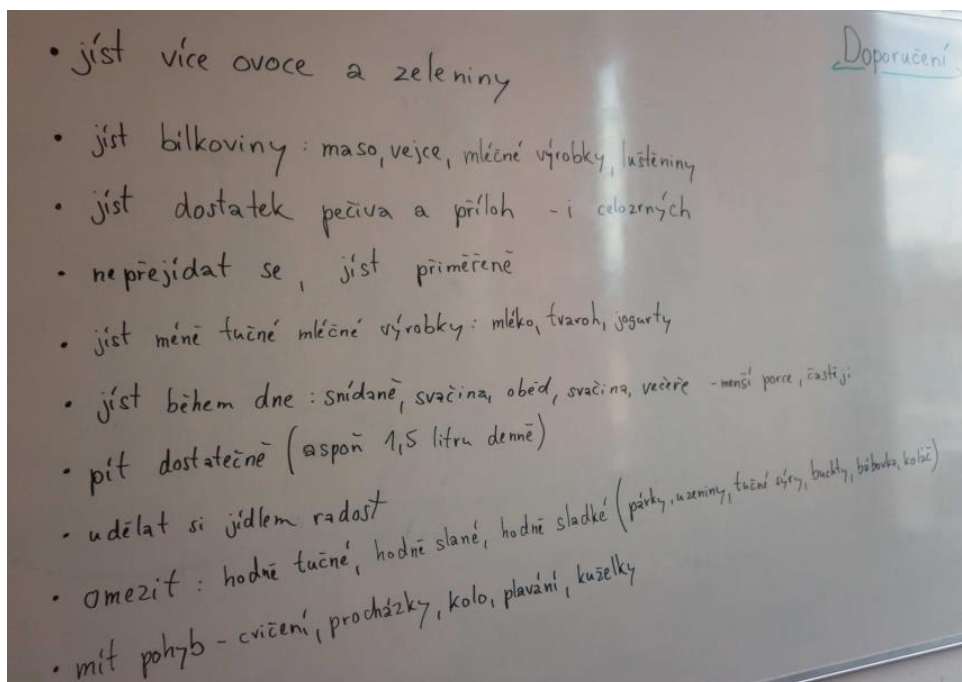 Doporučení
• jíst více ovoce a zeleniny
• jíst bílkoviny : maso, vejce, mléčné výrobky, luštěniny
• jíst dostatek pečiva a příloh - i celozrných
• nepřejídat se, jíst přiměřeně
• jíst méně tučné mléčné výrobky : mléko, tvaroh, jogurty
• jíst během dne : snídaně, svačina, oběd, svačina, večeře - menší porce, častěji
• pít dostatečně (aspoň 1,5 litru denně)
• udělat si jídlem radost
• omezit : hodně tučné, hodně slané, hodně sladké (párky, uzeniny, tuční sýry, buchty, bábovka, koláč)
• mít pohyb - cvičení, procházky, kolo, plavání, kuželky